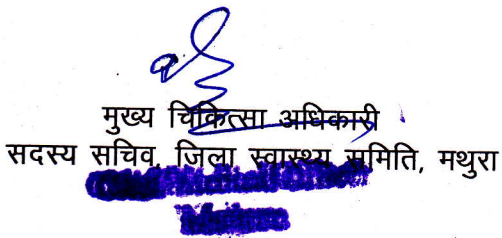 मुख्य चिकित्सा अधिकारी
सदस्य सचिव, जिला स्वास्थ्य समिति, मथुरा